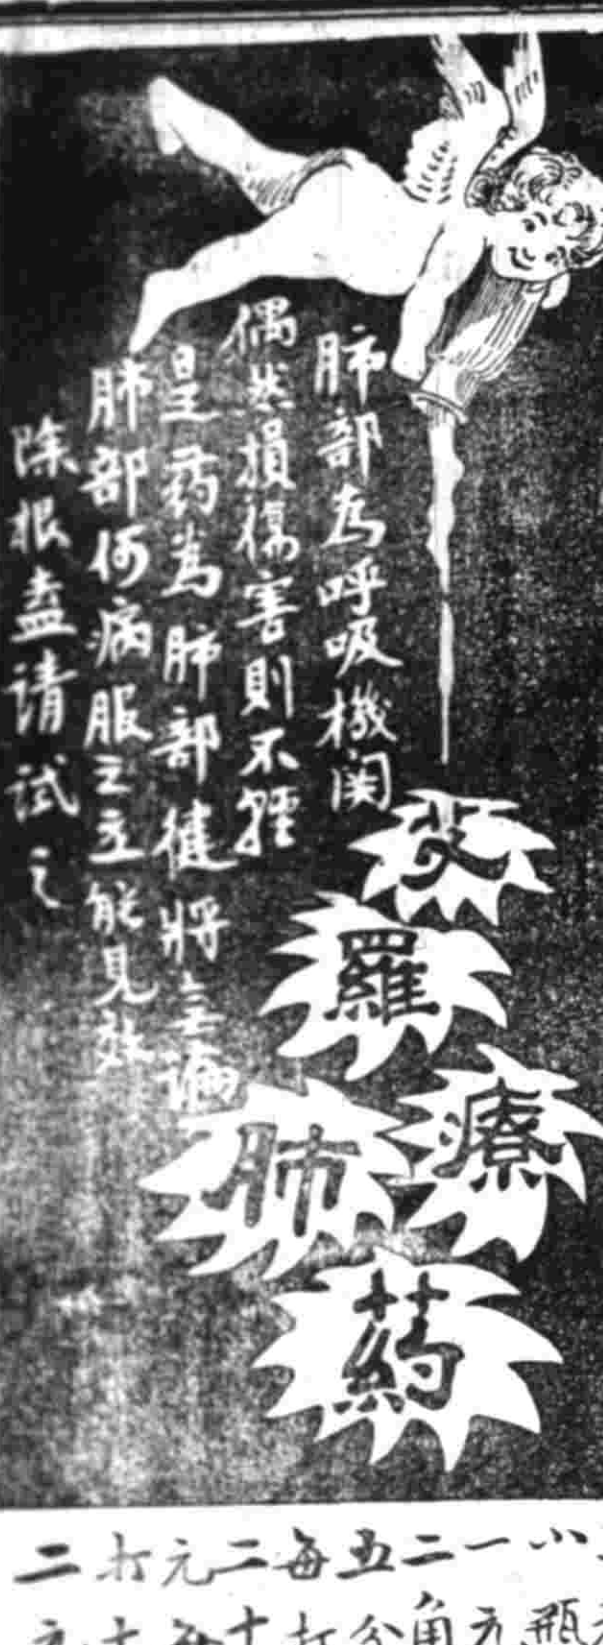 艾羅療肺葯
肺部為呼吸機関
偶然損傷害則不軽
是药為肺部健將毋論
肺部何病服之立能見效
除根盍请試之
小一二五每二元打二
瓶元角分打十